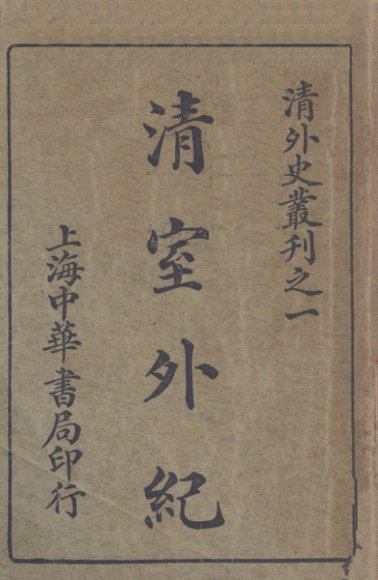 清外史叢刊之一
清室外紀
上海中華書局印行